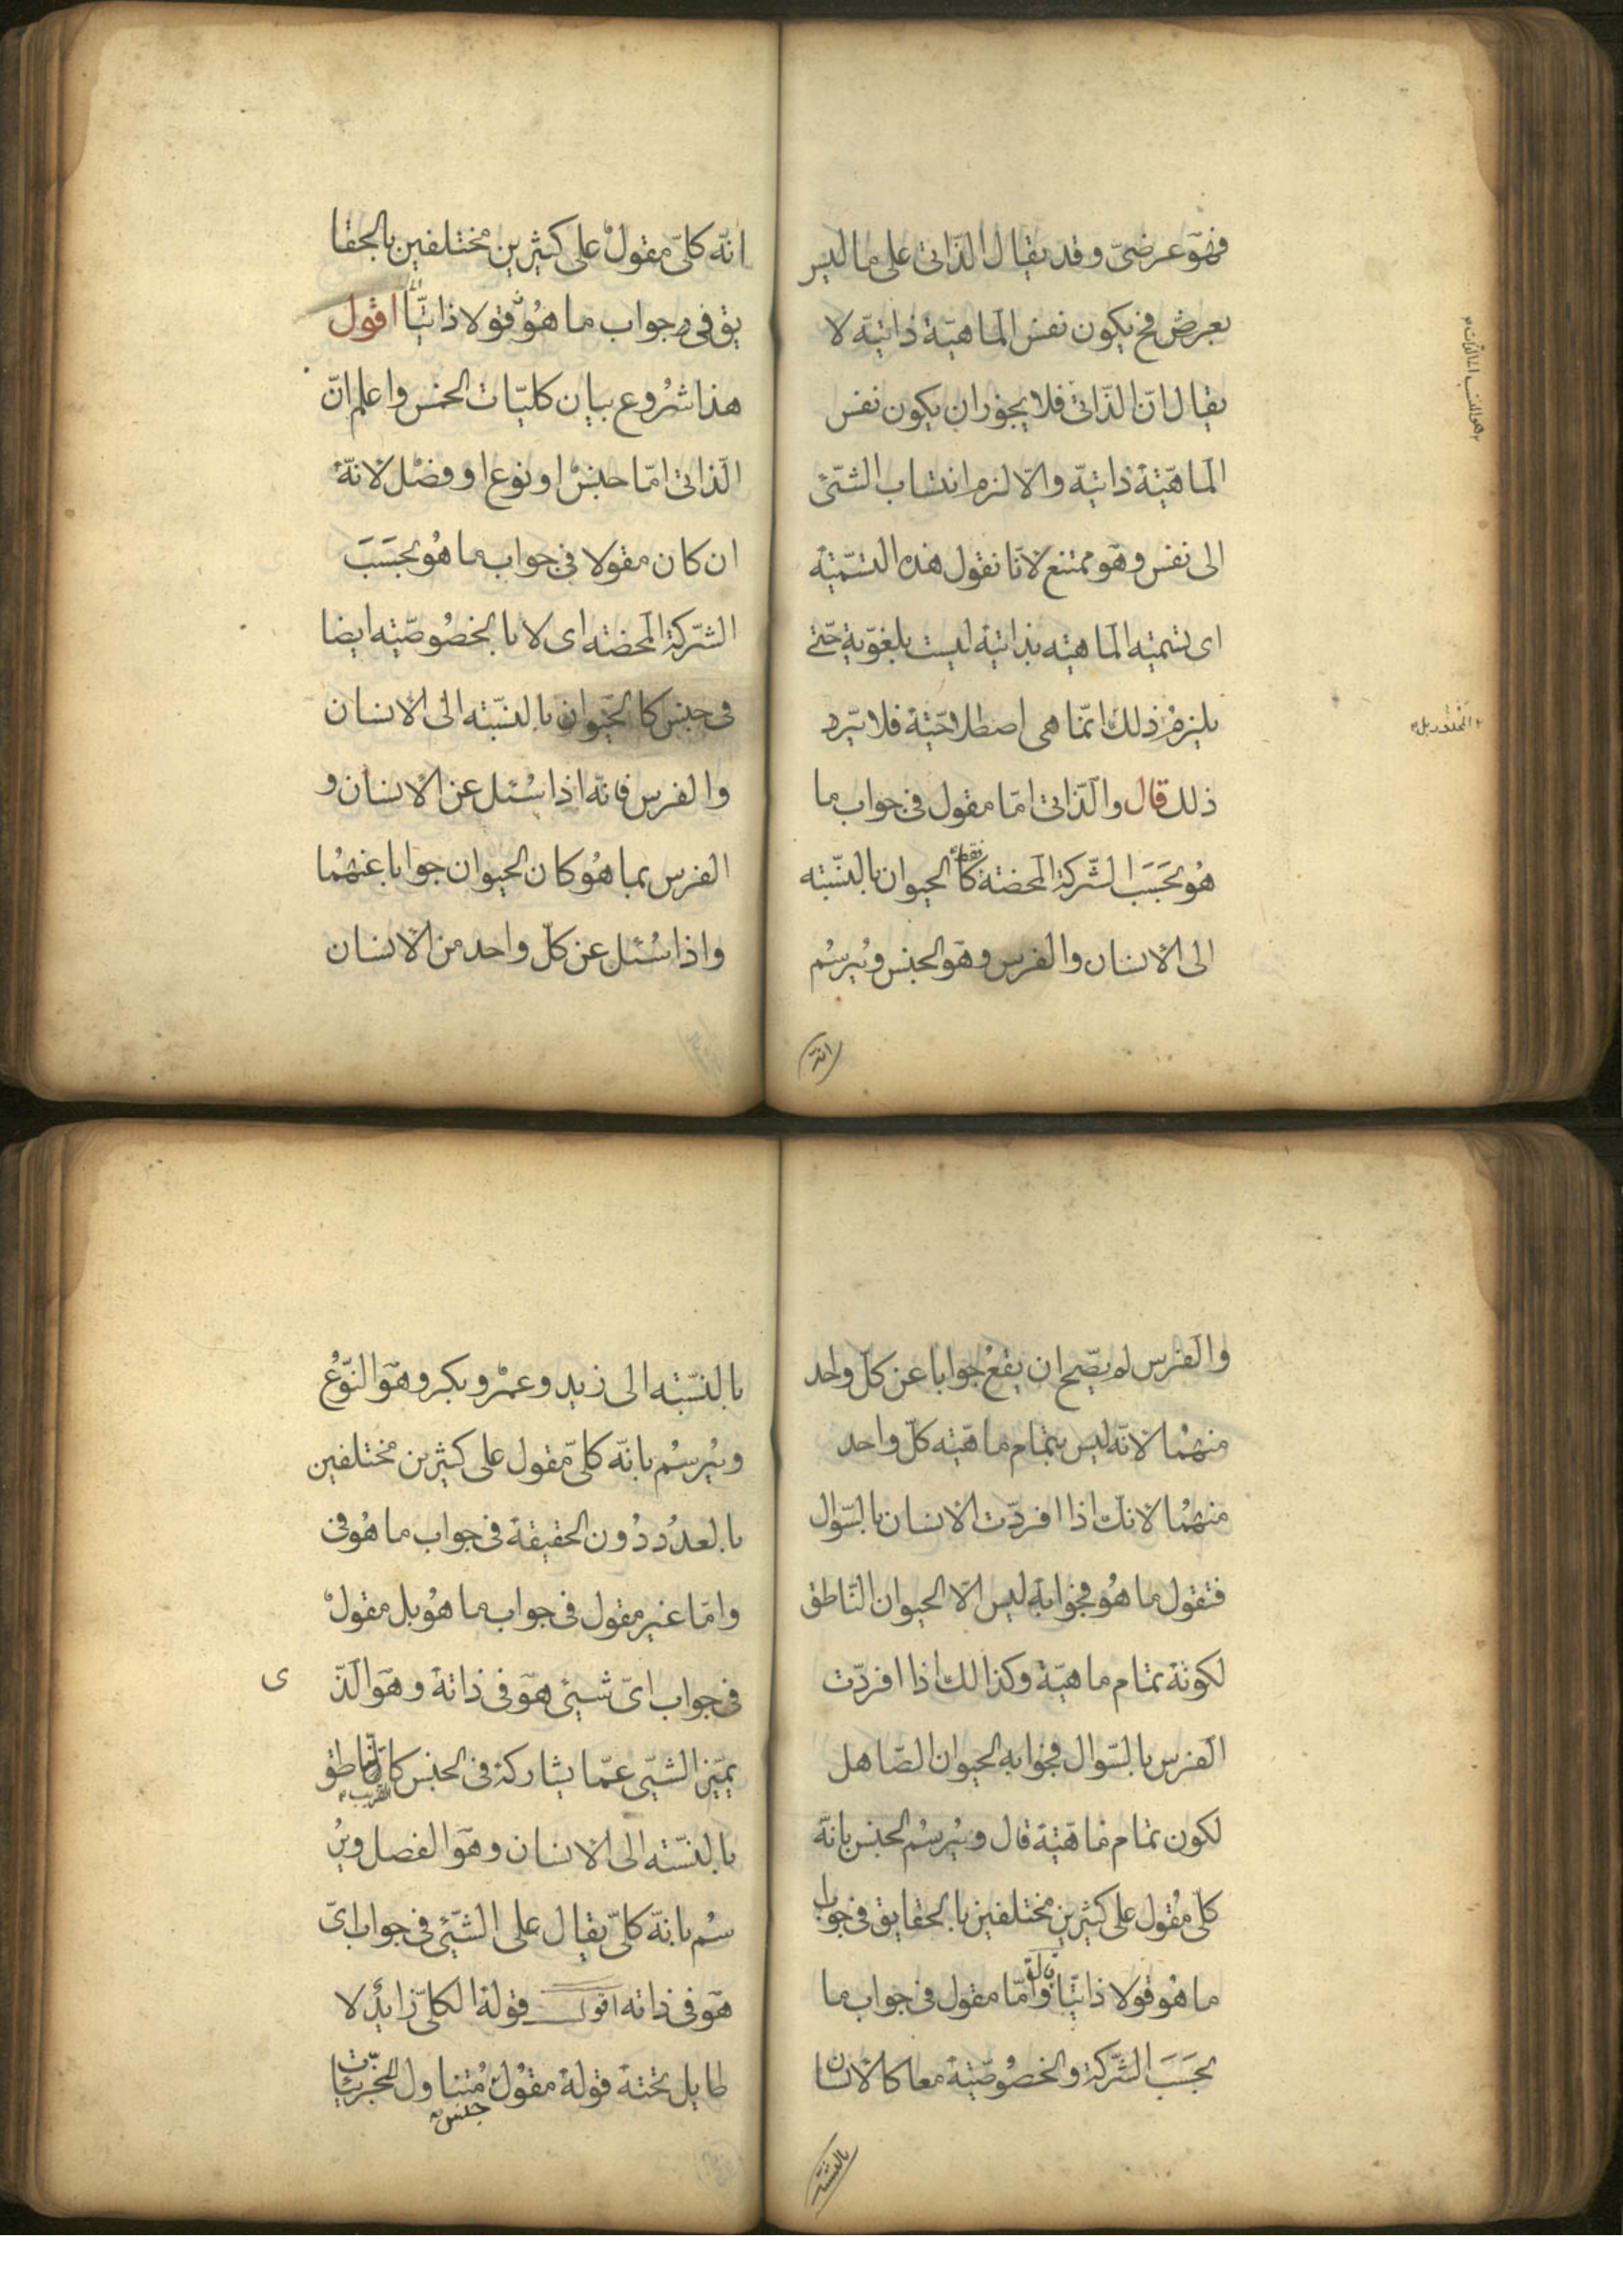 فهو عرضیّ وقد یقال الذّاتی علی ما لیس
بعرض فح یکون نفس الماهیّة ذاتیّة لا
یقال انّ الذّاتی فلا یجوز ان یکون نفس
الماهیّة ذاتیّة والّا لزم انتساب الشّئ
الی نفس وهو ممتنع لانّا نقول هذه التسّمیّة
ای تسمیه الماهیّه بذاتیّة لیست بلغوّیة حتّی
یلزم ذلك انّما هی اصطلاحّیّة فلا یرد
ذلك قال والّذاتی امّا مقول فی جواب ما
هُو بحَسَب الشّرکة المحضة کا الحیوان بالنسّبته
الی الانسان والفرس وهو الجنس ویُرسُم
انّه
انّه کلیّ مقولٌ علی کثیرین مختلفین بالحقا
یق فی جواب ما هُو قولا ذاتیّا اقول
هذا شُروع بیان کلیّات الخمس واعلم انّ
الّذاتی امّا جنسٌ او نوع او فصل لانّهُ
ان کان مقولا فی جواب ما هُو بحَسَبَ
الشّرکة المحضه ای لا با الخصُوصّیته ایضا
فی جنس کا الحیوان بالنسّبته الی الانسان
والفرس فانّه اذا سُئل عن الانسان و
الفرس بما هُو کان الحیوان جوابا عنهُما
واذا سُئل عن کلّ واحد من الانسان
والفرس لم یصّح ان یقعُ جوابا عن کلّ واحد
منهُما لانّه لیس بتمام ماهیّه کلّ واحد
منهُما لانّك اذا افردّت الانسان بالسّوال
فتقول ما هُو فجوابهِ لیس الّا الحیوان النّاطق
لکونهُ تمام ماهیّة وکذالك اذا افردّت
الفرس بالسّوال فجوابه الحیوان الصّاهل
لکون تمام ماهّیّة قال ویُرسُم الجنس بانّه
کلّی مُقول علی کثیرین مختلفین بالحقایق فی جواب
ما هُو قولا ذاتّیا وامّا مقول فی جواب ما
بحَسَبَ الشّرکة والخصُوصّیّة معا کالانسان
بالنسّبته
بالنسّبته الی زید وعمرٌو وبکر وهوَ النّوعُ
ویُرسُم بانّه کلیّ مّقول علی کثیرین مختلفین
بالعدُد دُون الحقیقة فی جواب ما هُو فی
وامّا غیر مقول فی جواب ما هُو بل مقولٌ
فی جواب ایّ شیئ هوَ فی ذاتهُ وهوَ الّذ
ی
یمیّز الشّیّ عمّا یشارکهُ فی الجنس کالنّاطق
القریب
بالنسّته الی الانسان وهوَ الفصل ویُر
سُم بانّه کلیّ یقال علی الشّیئ فی جواب ایّ
هوَ فی ذاته اقول قولهُ الکلیّ زایدٌ لا
طایل تحتهُ قولهُ مقُولٌ مُتناول للجزئیّات
جنس